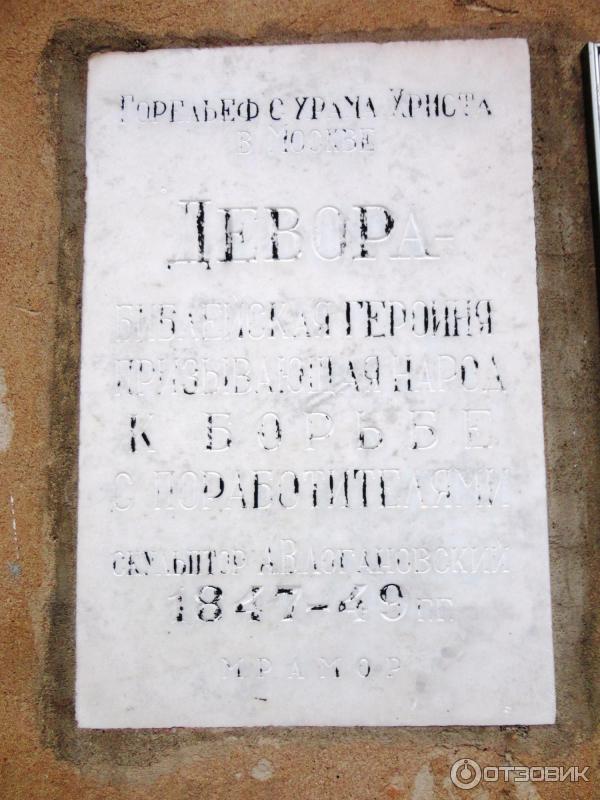 Горельеф с храма Христа
в Москве
Девора-
библейская героиня
призывающая народ
к борьбе
с поработителями
скульптор А.В. Логановский
1847-49 гг.
мрамор
ОТЗОВИК